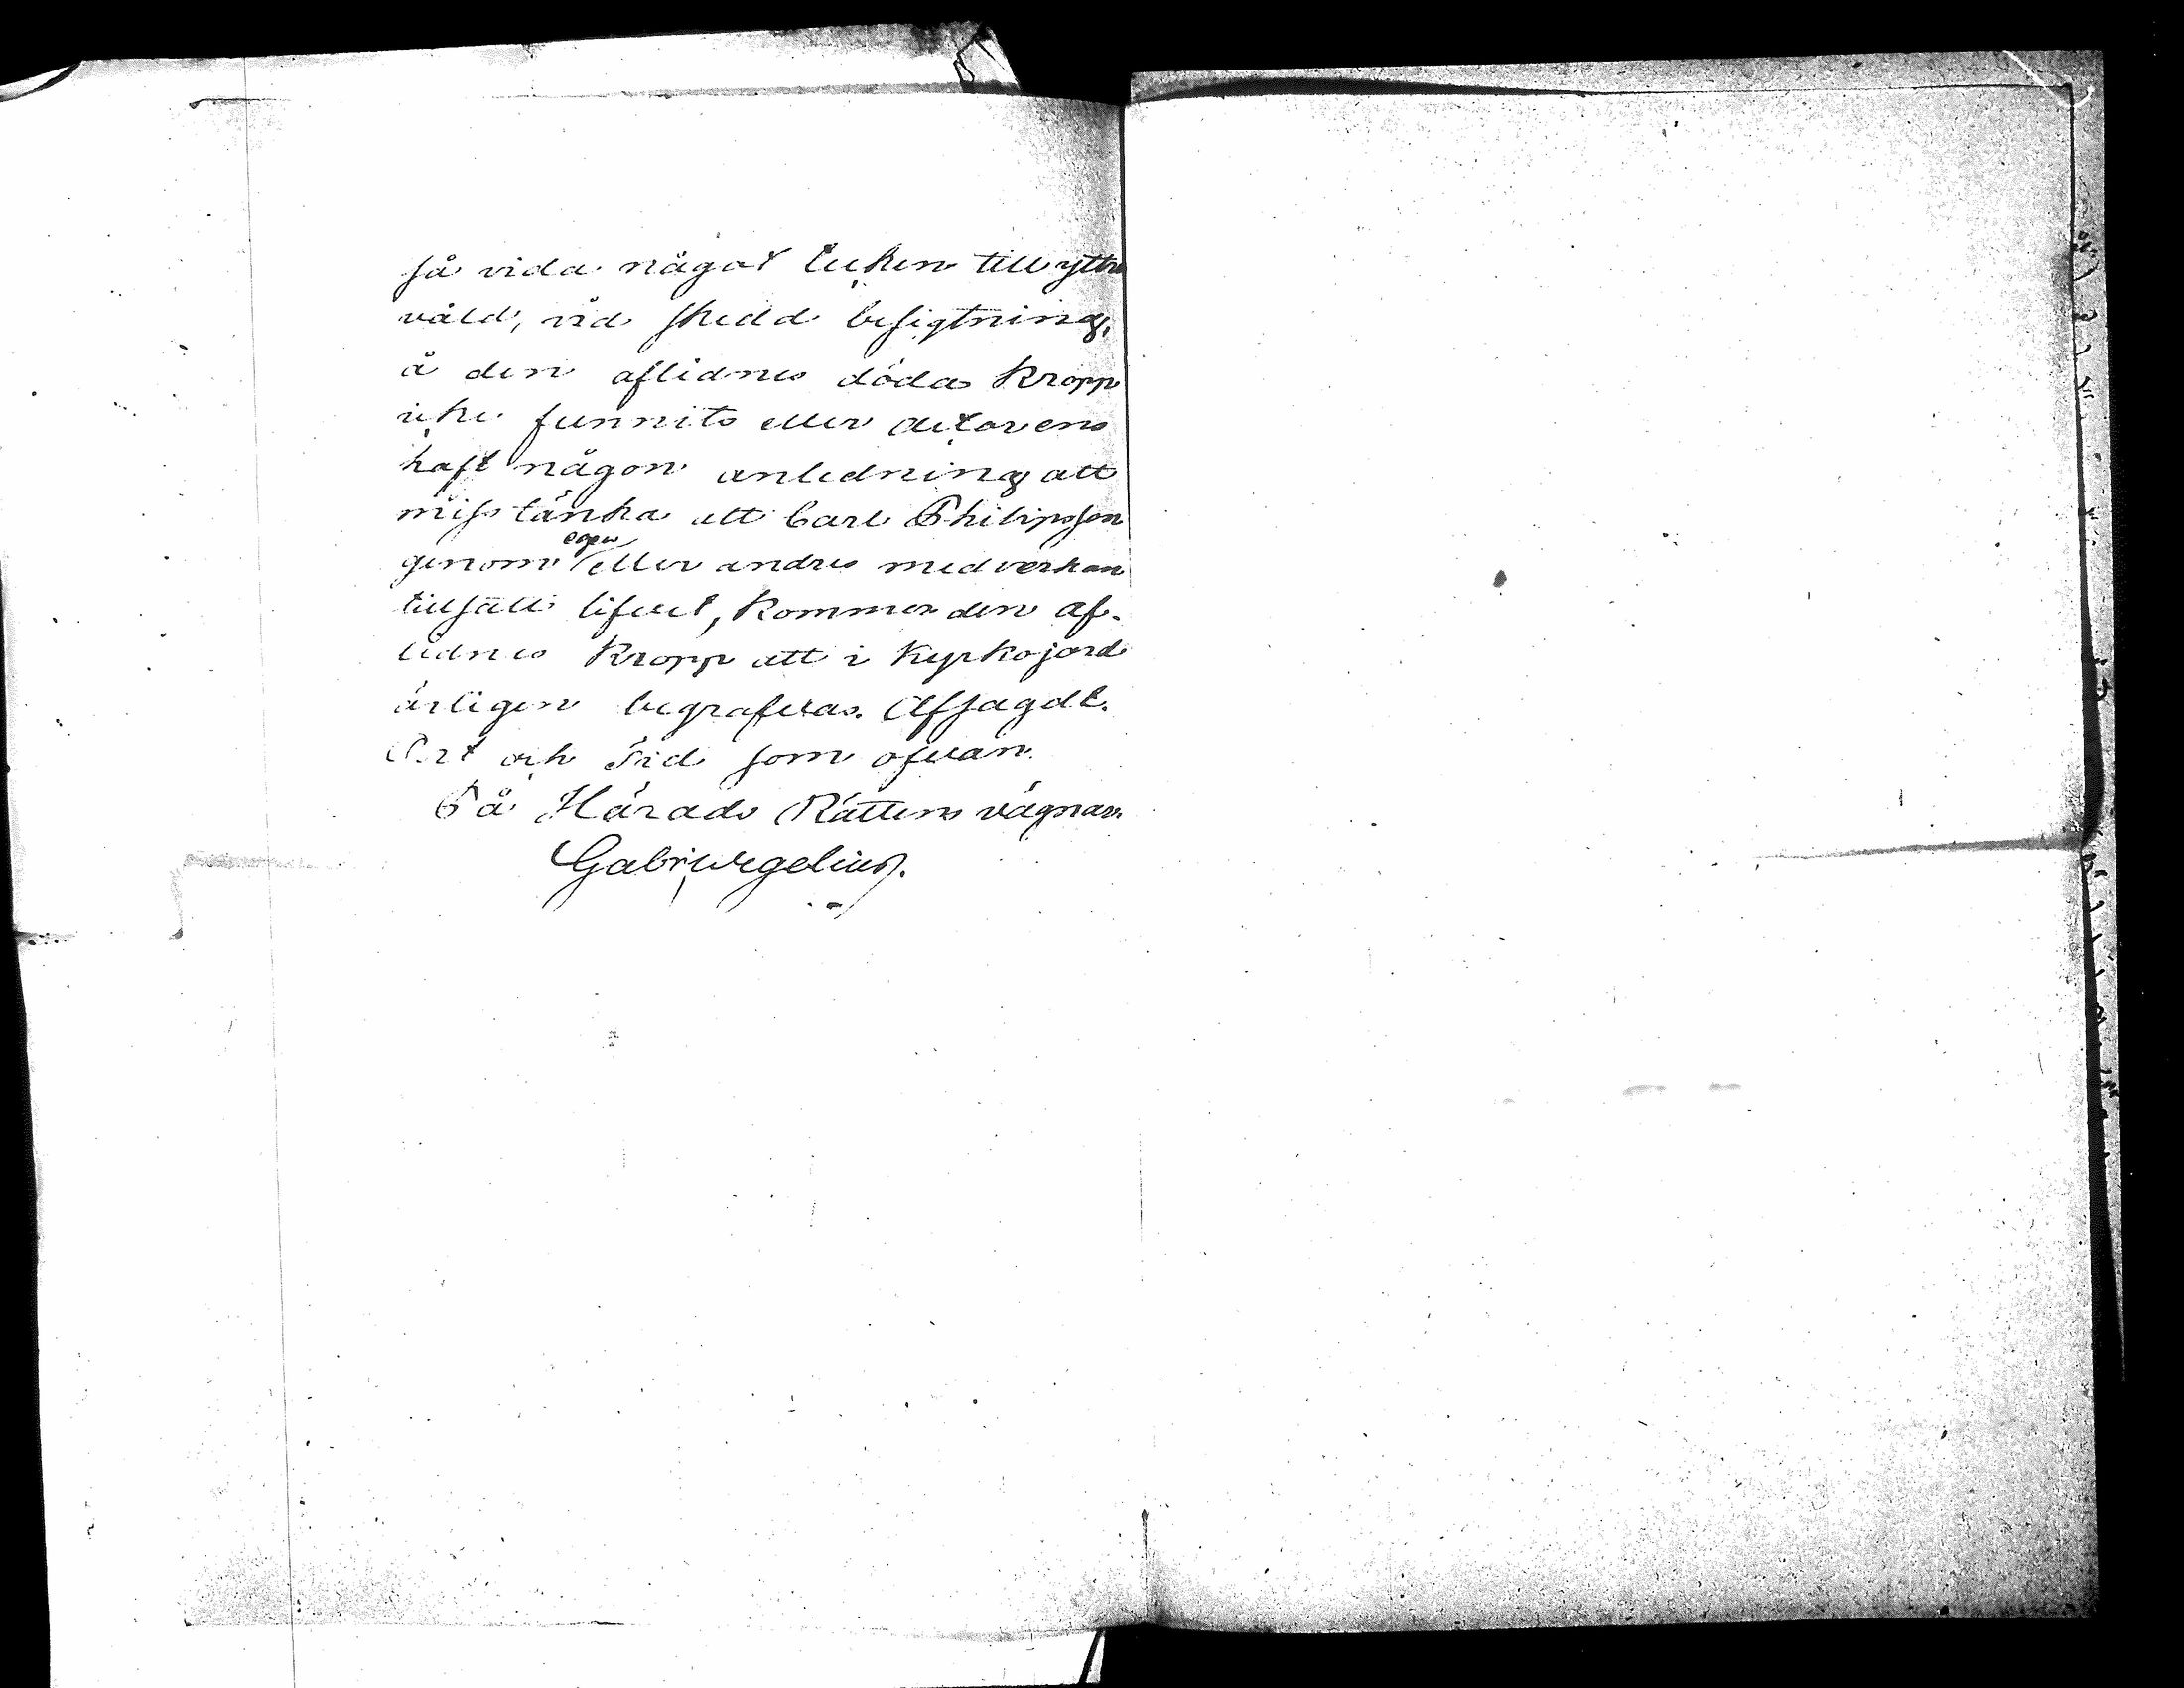 så vida något tecken till yttre
våld, vid skedd besigtning,
å den aflidnes döda Kropp
icke funnits eller det ox ens
haft någon anledning att
misstänka att Carl Philipsson
genom egen eller andres medverkan
tillsatt lifvet, Kommer den af-
lidnes Kropp att i Kyrkojord
ärligen begrafvas. Afsagdt.
Ort och Tid som ofvan.
På Härads Rättens vägnar.
Gabr Wegelius.